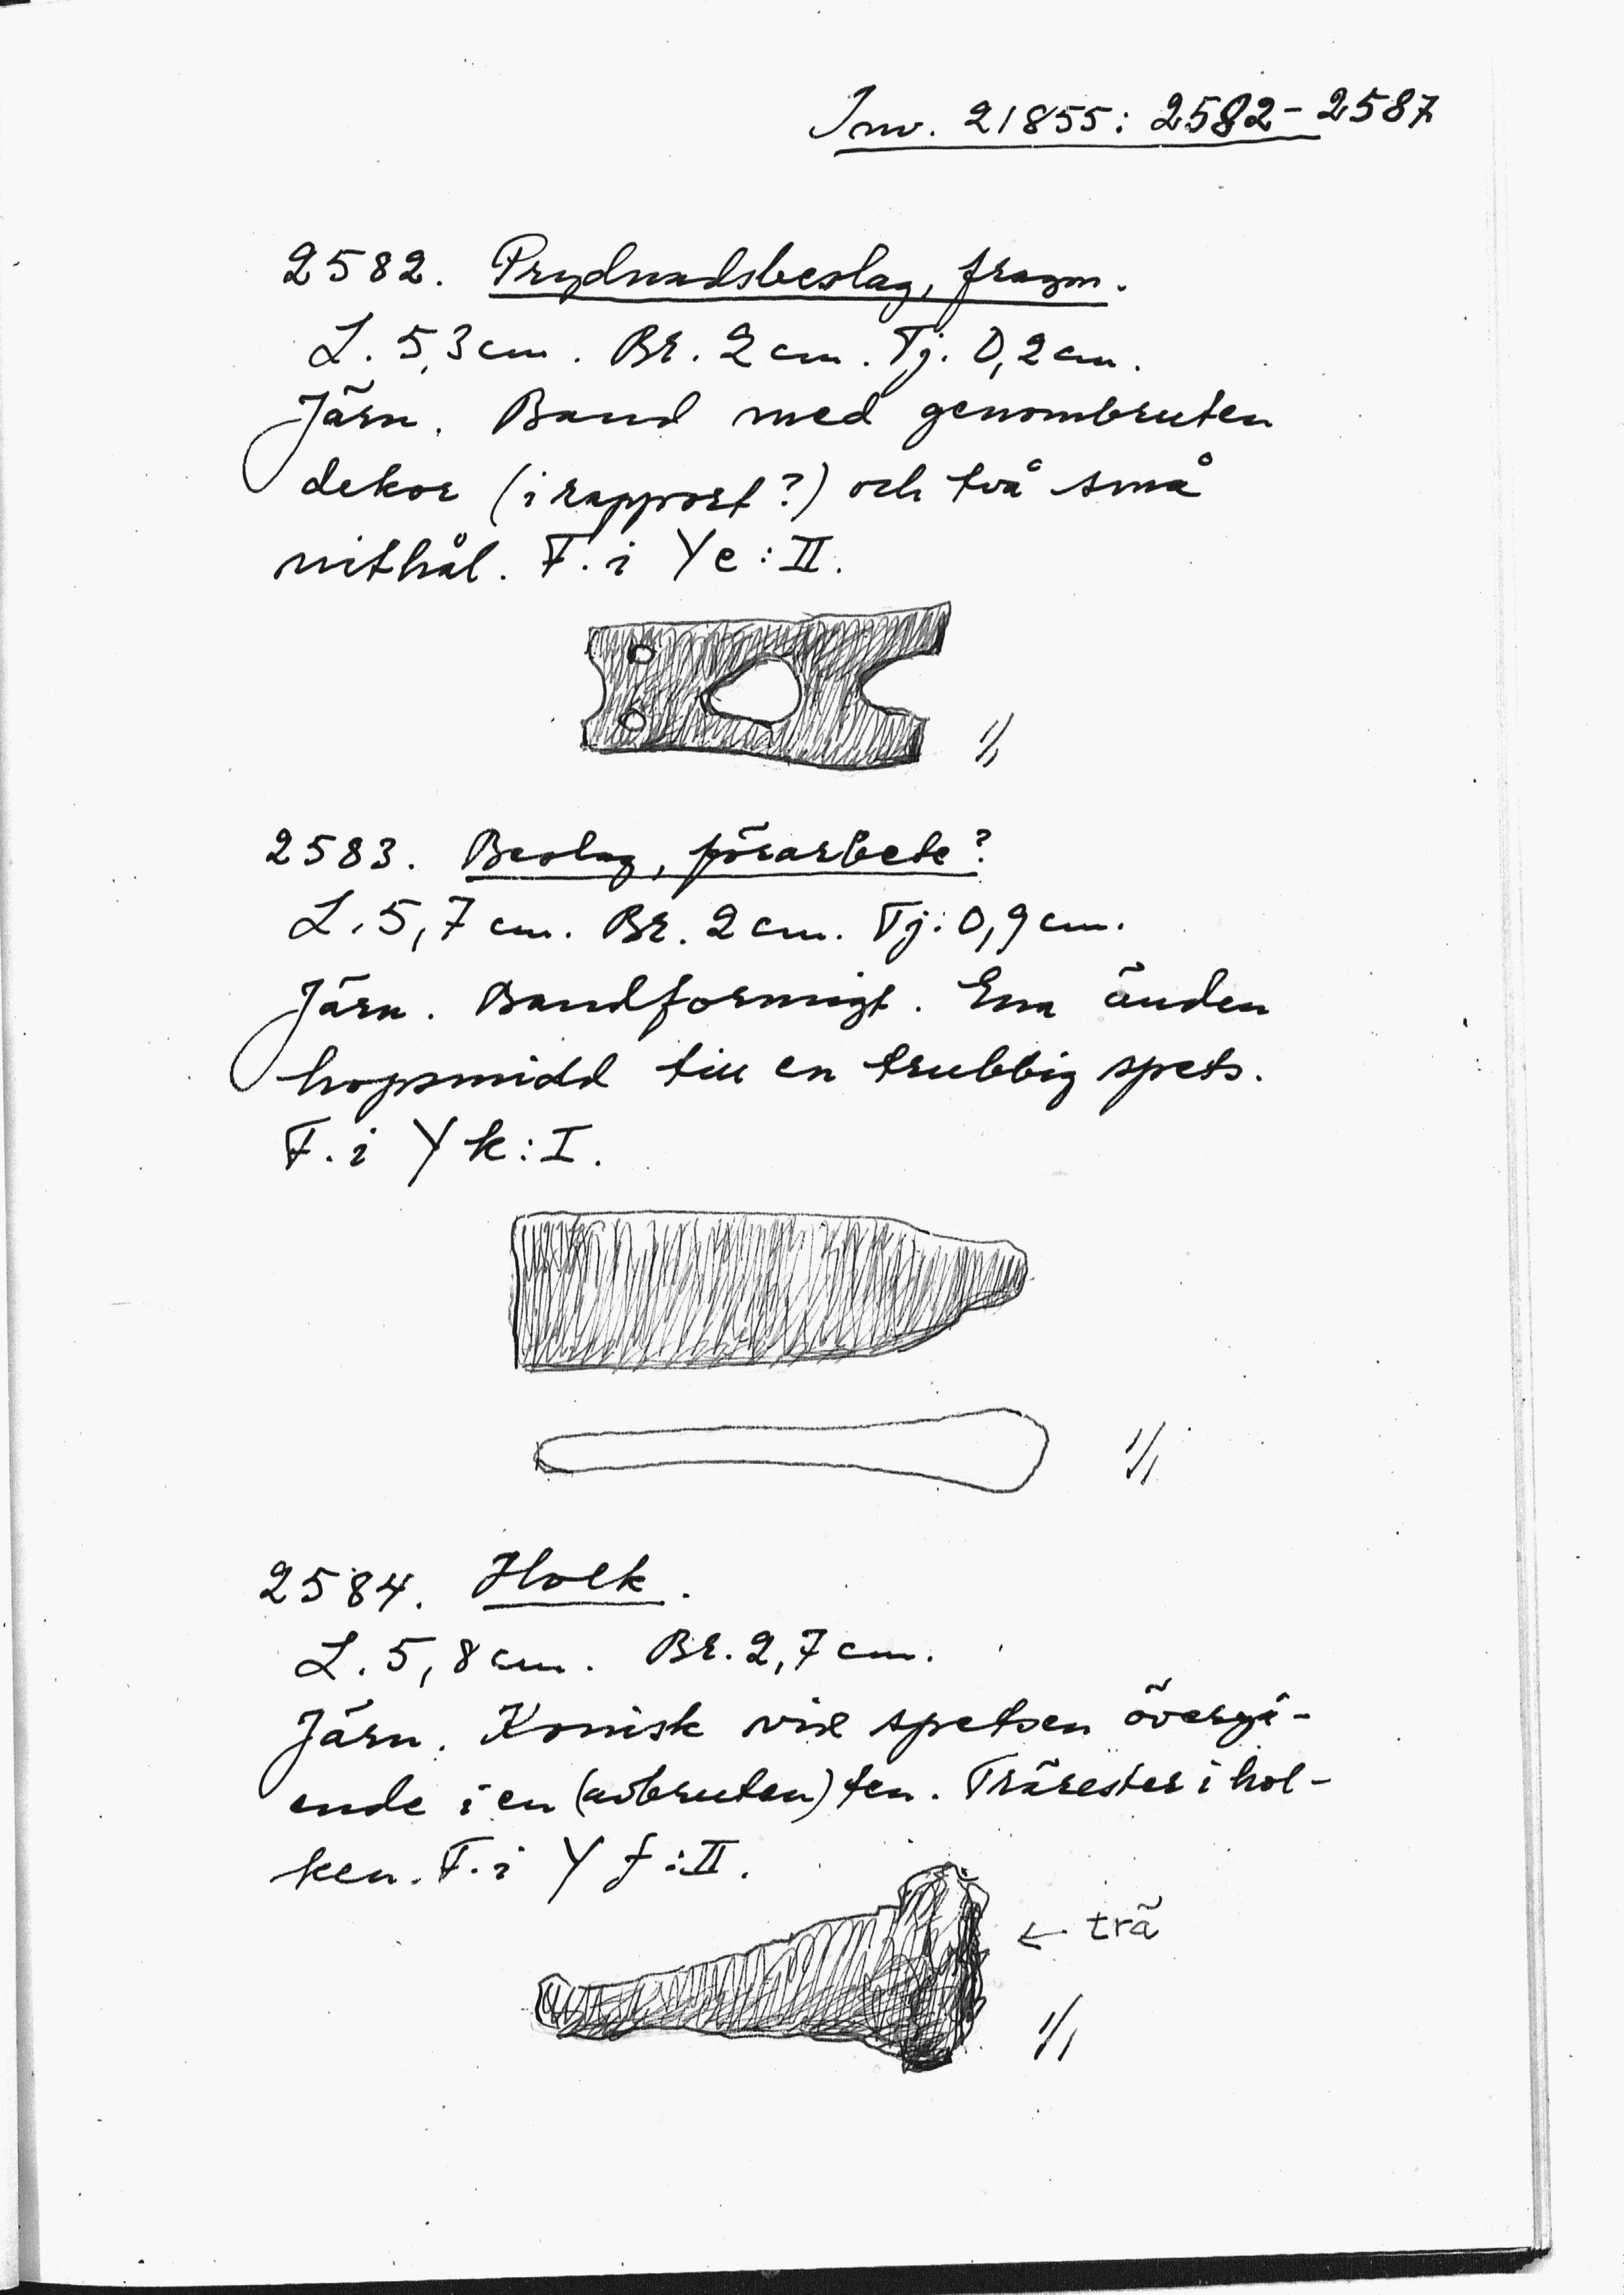 Inv. 21855: 2582-2587
2582. Prydnadsbeslag, fragm.
L. 5,3 cm. Br. 2 cm. Tj. 0,2 cm.
Järn. Band med genombruten
dekor (i rapport?) och två små
nithål. F. i Ye:II.
1/1
2583. Beslag, förarbete?
L. 5,7 cm. Br. 2 cm. Tj: 0,9 cm.
Järn. Bandformigt. Ena änden
hopsmidd till en trubbig spets.
F. i Yk:I.
1/1
2584. Holk.
L. 5,8 cm. Br. 2,7 cm.
Järn. Konisk vid spetsen övergå-
ende i en (avbruten) ten. Trärester i hol-
ken. F. i Yf:II.
← trä
1/1